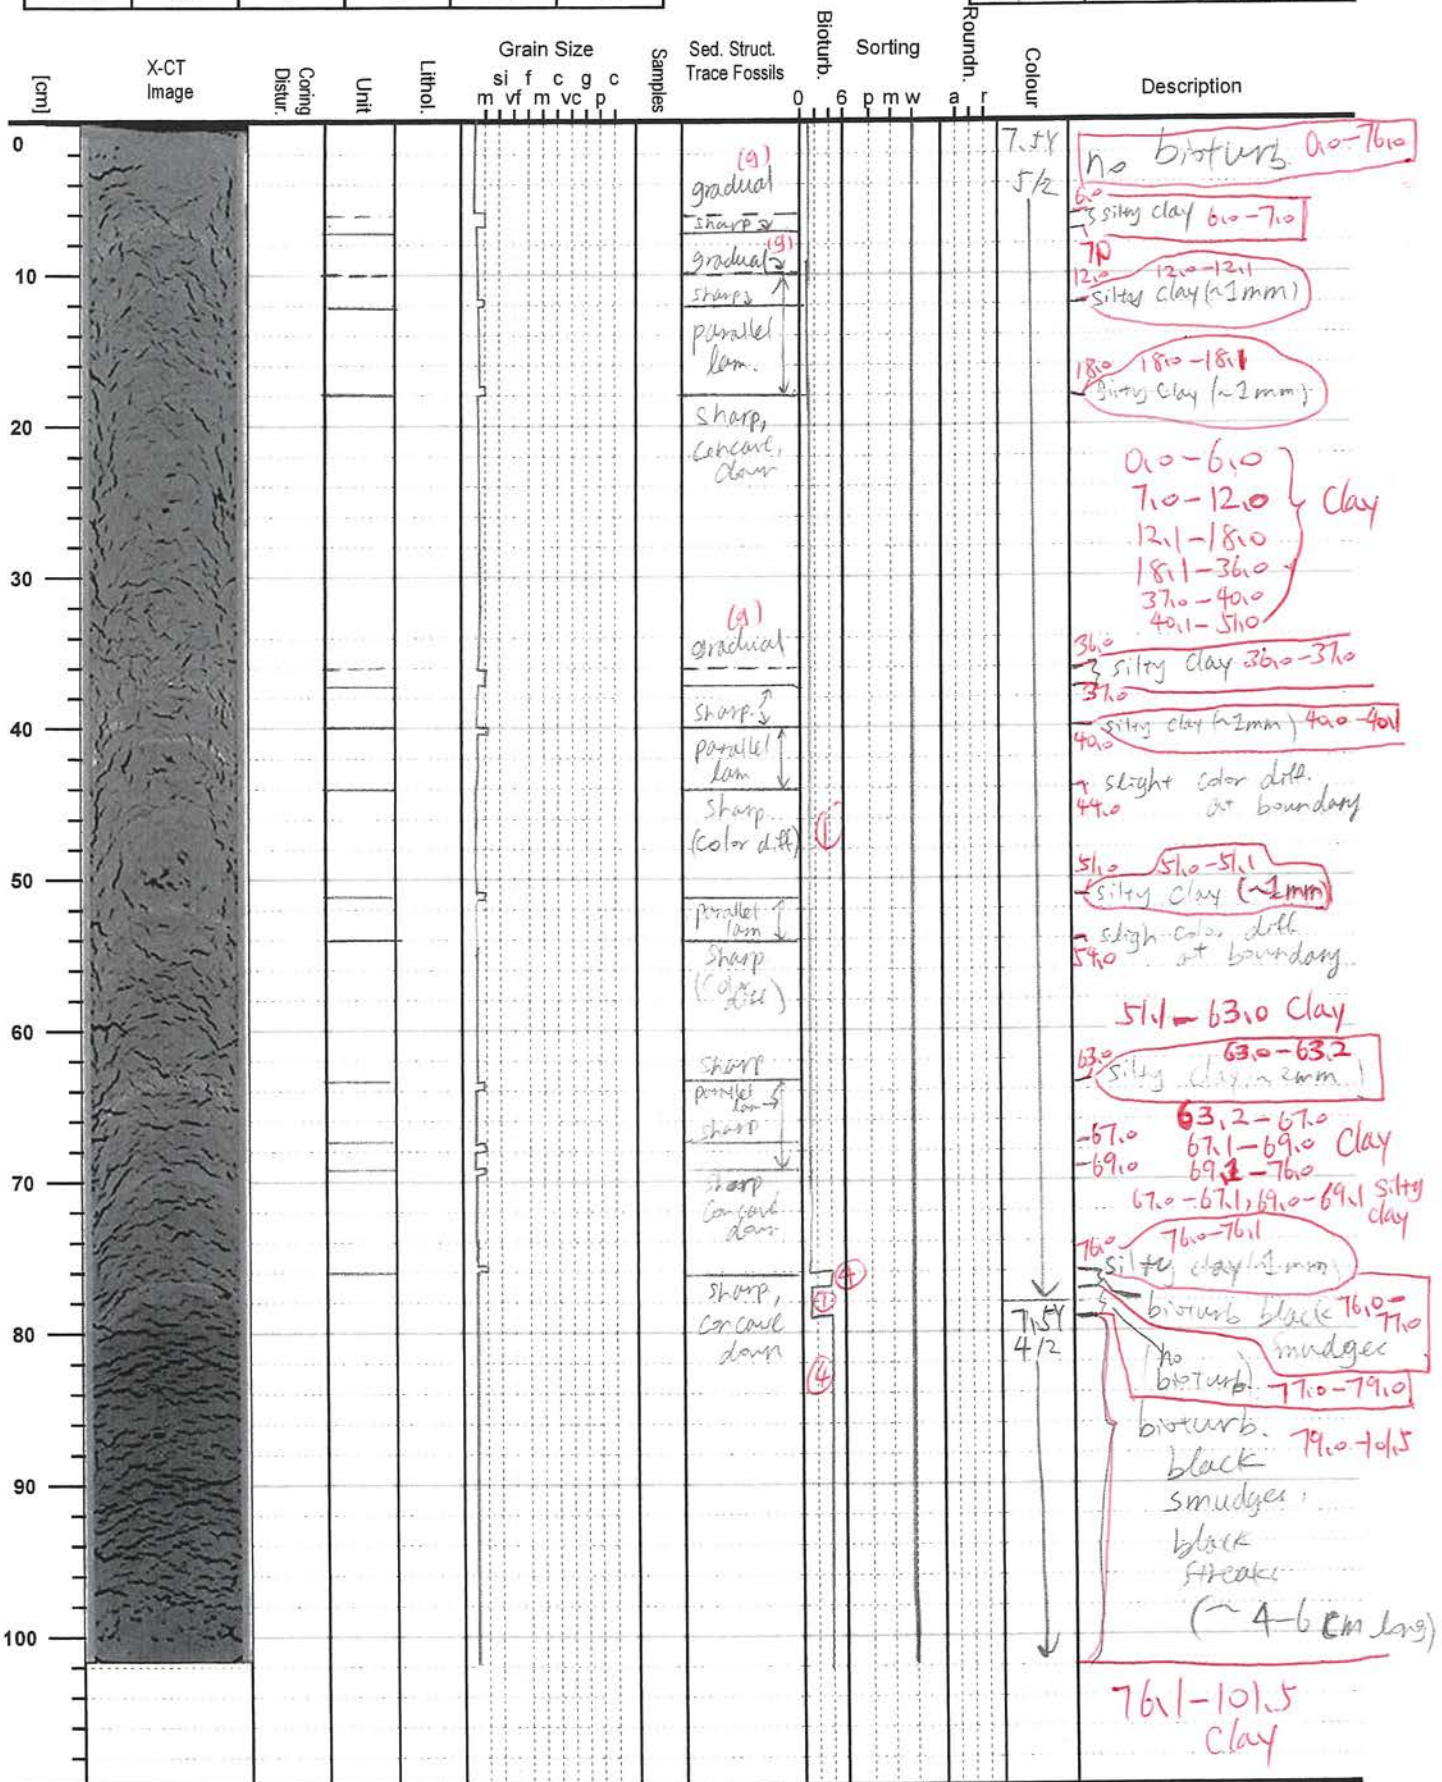 [cm]
X-CT
Image
Coring
Distur.
Unit
Lithol.
Grain Size
si f c g c
m vf m vc p
Samples
Sed. Struct.
Trace Fossils
Bioturb.
0 6
Sorting
p m w
Roundn.
a r
Colour
Description
0
10
20
30
40
50
60
70
80
90
100
(g)
gradual
sharp
gradual (g)
sharp
parallel
lam.
sharp,
concave,
down
(g)
gradual
sharp
parallel
lam
sharp
(color diff)
parallel
lam
sharp
(color
diff)
sharp
parallel
lam
sharp
sharp
concave
down
sharp,
concave
down
1
4
1
4
7.5Y
5/2
7.5Y
4/2
no bioturb. 0.0-76.0
6.0
silty clay 6.0-7.0
7.0
12.0 12.0-12.1
silty clay (~1mm)
18.0 18.0-18.1
silty clay (~1mm)
0.0-6.0
7.0-12.0 Clay
12.1-18.0
18.1-36.0
37.0-40.0
40.1-51.0
36.0
silty clay 36.0-37.0
37.0
silty clay (~1mm) 40.0-40.1
40.0
slight color diff.
44.0 at boundary
51.0 51.0-51.1
silty clay (~1mm)
sligh color diff
54.0 at boundary
51.1-63.0 Clay
63.0 63.0-63.2
silty clay ~2mm
63.2-67.0
-67.0 67.1-69.0 Clay
-69.0 69.1-76.0
67.0-67.1, 69.0-69.1 silty
clay
76.0 76.0-76.1
silty clay (~1mm)
bioturb black 76.0-
77.0
smudges
(no
bioturb) 77.0-79.0
bioturb. 79.0-101.5
black
smudges,
black
streaks
(~4-6 cm long)
76.1-101.5
Clay